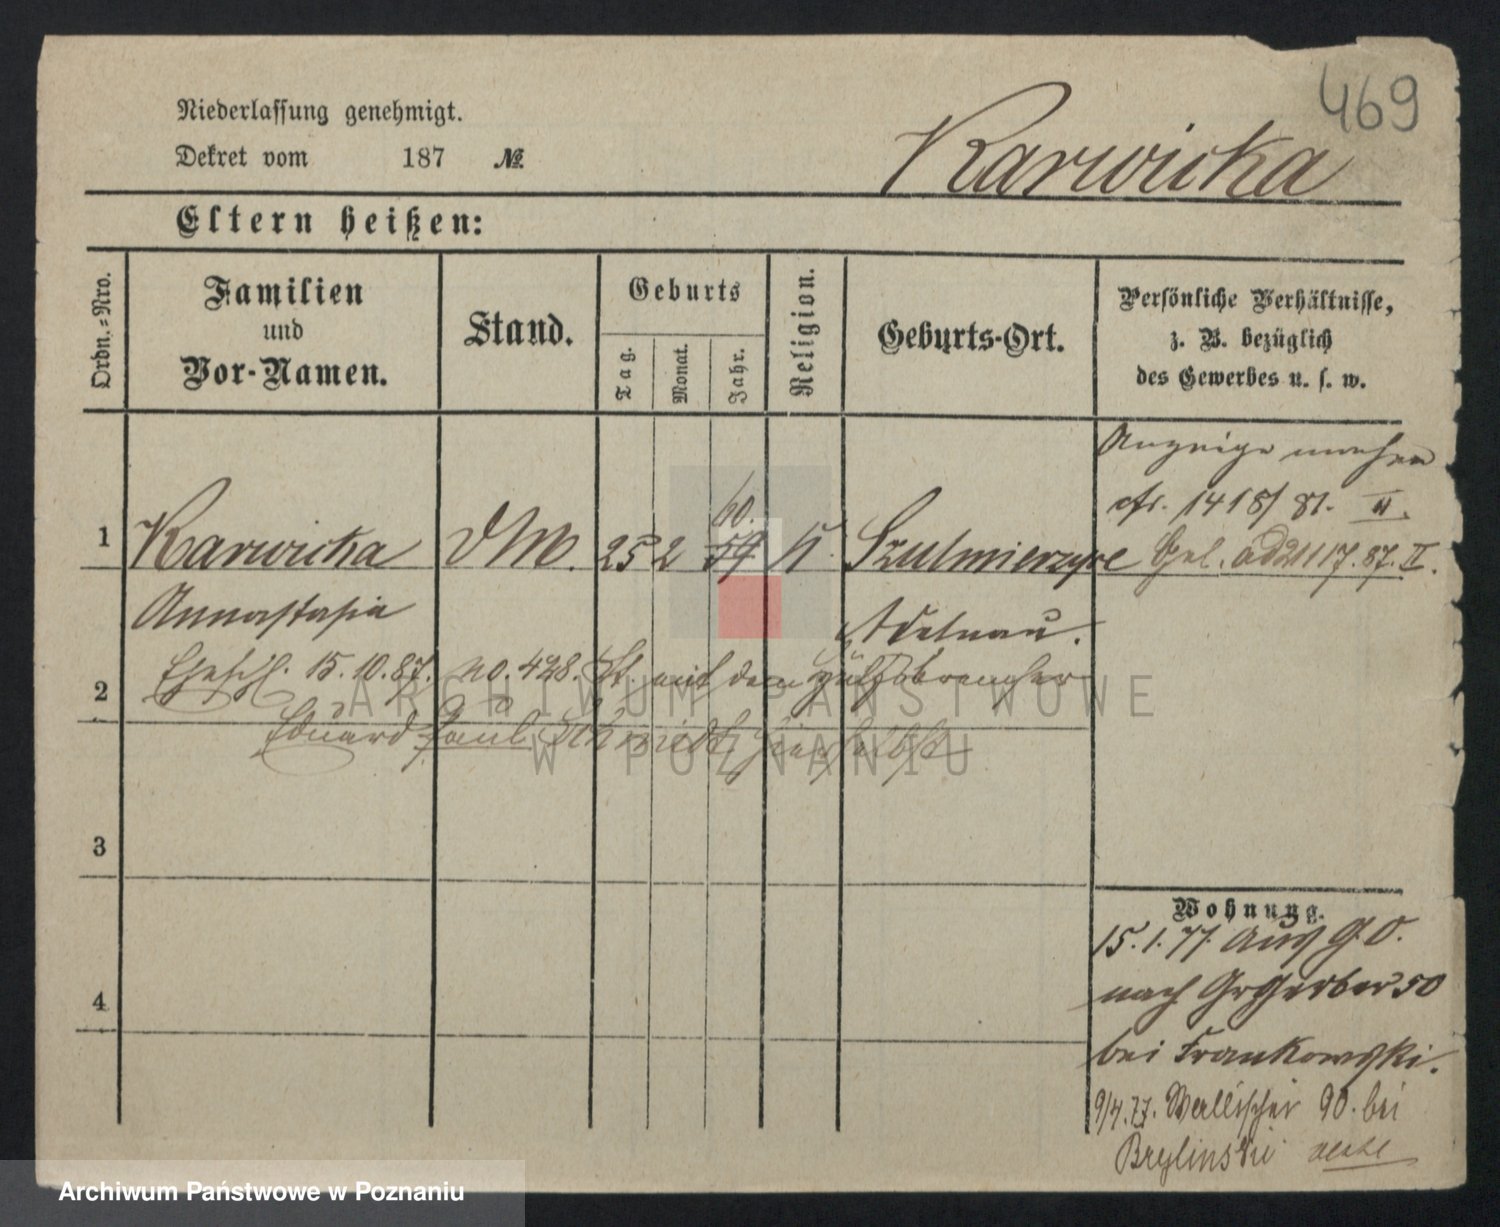 469
Niederlassung genehmigt.
Dekret vom 187 №
Karwicka
Eltern heißen:
Ordn.-Nro.
Familien
und
Vor-Namen.
Stand.
Geburts
Tag.
Monat.
Jahr.
Religion.
Geburts-Ort.
Persönliche Verhältnisse,
z. B. bezüglich
des Gewerbes u. s. w.
Anzeige
cfr. 1418/81. II.
1
Karwicka
DM.
25
2
60.
59
K.
Szulmierzyce
87. II.
Annastasia
Adelnau.
2
Ehesch. 15.10.87. no. 428. St. mit dem
Eduard Paul Schmidt hierselbst
3
4
Wohnung.
15.1.77. Aus G. O.
nach Gr Gerber 50
bei Frankowski.
9/4.77. Wallischei 90. bei
Brylinski
ARCHIWUM PAŃSTWOWE
W POZNANIU
Archiwum Państwowe w Poznaniu